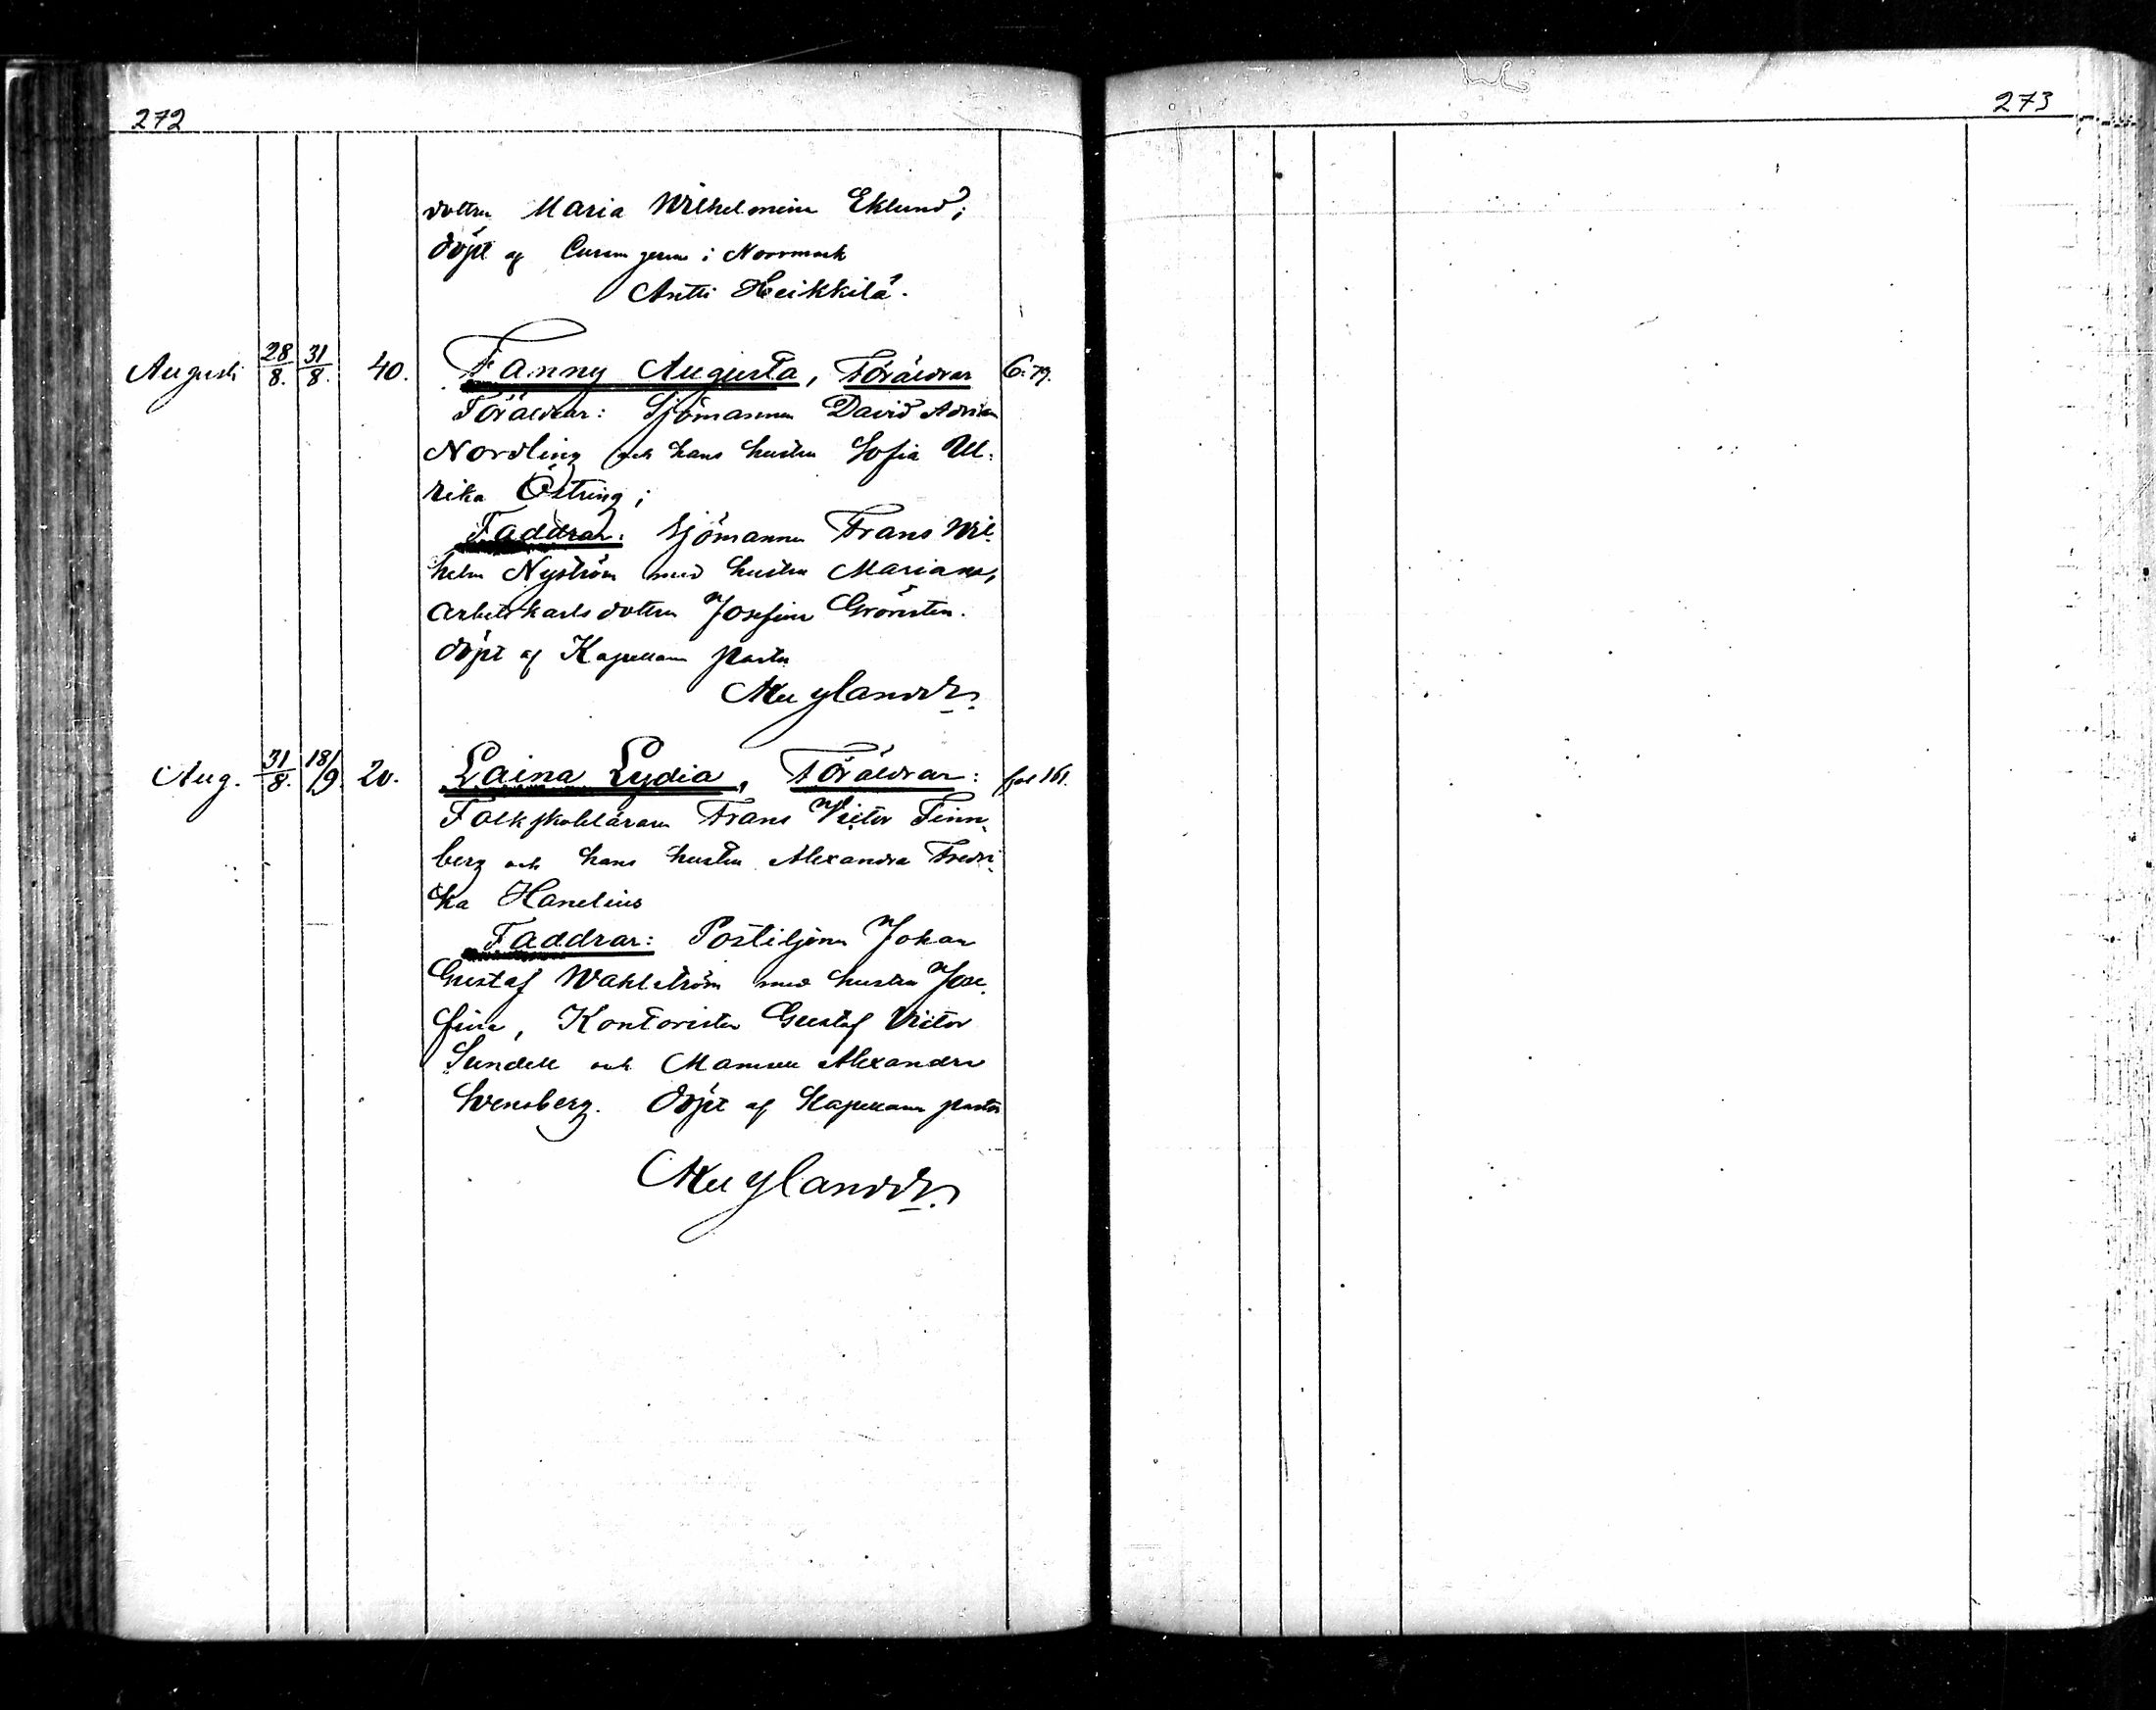 272
273
dottren Maria Wilhelmina Eklund;
döpt af i Norrmark
Antti Heikkilä.
Augusti 28/8. 31/8. 40. Fanny Augusta, Föräldrar 6:79.
Föräldrar: Sjömannen David Adrian
Nordling och hans hustru Sofia Ul-
rika Östring;
Faddrar: Sjömannen Frans Wil-
helm Nyström med hustru Mariana,
arbetskarlsdottren Josefina Grönsten.
döpt af Kapellans pastor
Nylander.
Aug. 31/8. 18/9. 20. Laina Lydia, Föräldrar: fol 161.
Folkskolläraren Frans Victor Finn-
berg och hans hustru Alexandra Fredri-
ka Hanelius
Faddrar: Postiljonen Johan
Gustaf Wahlström med hustru Jose-
fina, Kontoristen Gustaf Victor
Sundell och Mamsell Alexandra
Svensberg. döpt af Kapellans pastor
Nylander.